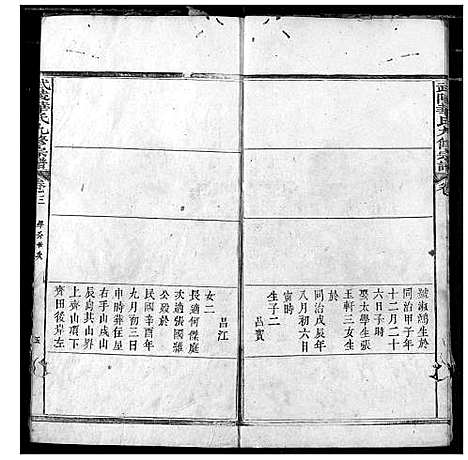 武陵華氏九修宗譜
淑鴻生於
同治甲子年
十二月二十
六日子時
娶太學生張
玉軒三女生
於
同治戊辰年
八月初六日
寅時
生子二
呂賓
呂江
女二
長適何傑庭
次適張國
公歿於
民國辛酉年
九月前三日
申時葬伍星
右手山戌山
辰向其山界
上齊山頂下
齊田後岸左
武陵華氏九修宗譜
卷三
五